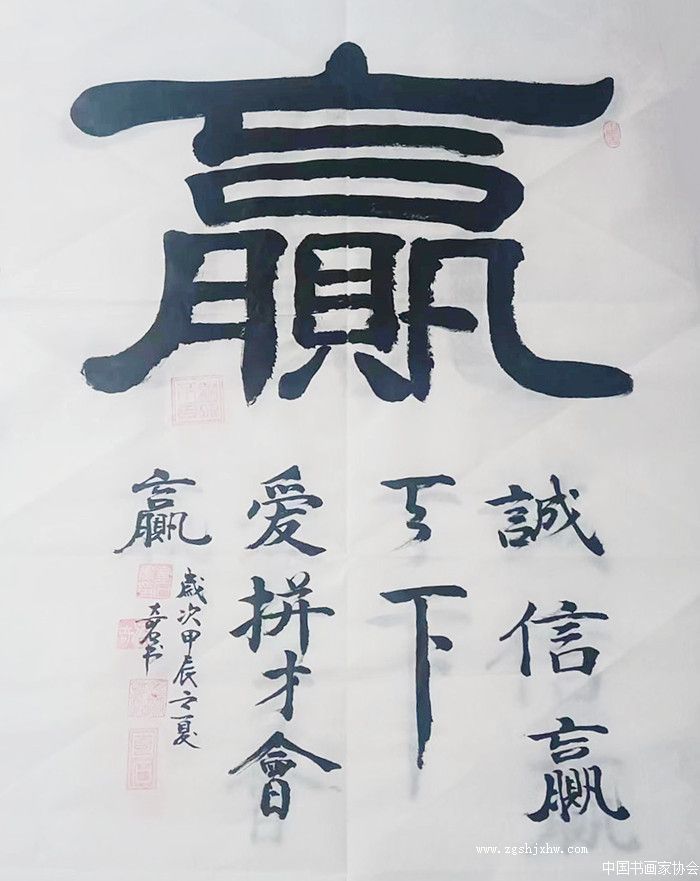 贏
誠信贏
天下
爱拼才會
贏
歲次甲辰之夏
奇石书
www.zgshjxhw.com
中国书画家协会